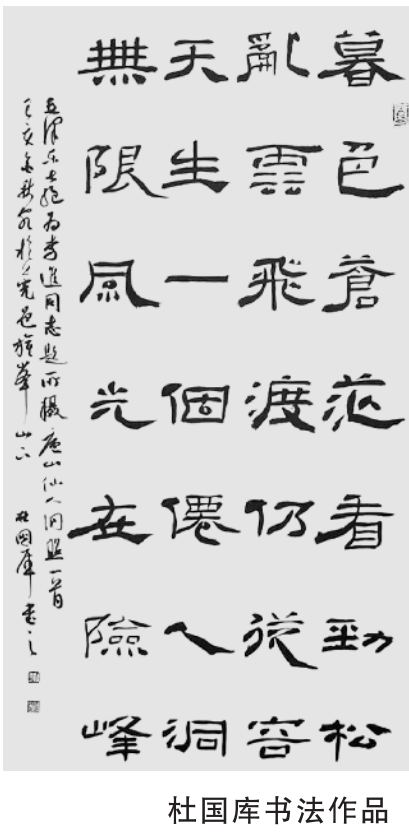 暮色蒼茫看勁松
亂雲飛渡仍從容
天生一個僊人洞
無限風光在險峰
毛澤东七絕为李進同志題所攝庐山仙人洞照一首
己亥金秋於莞邑旗峯山下 杜國庫書之
杜国库书法作品